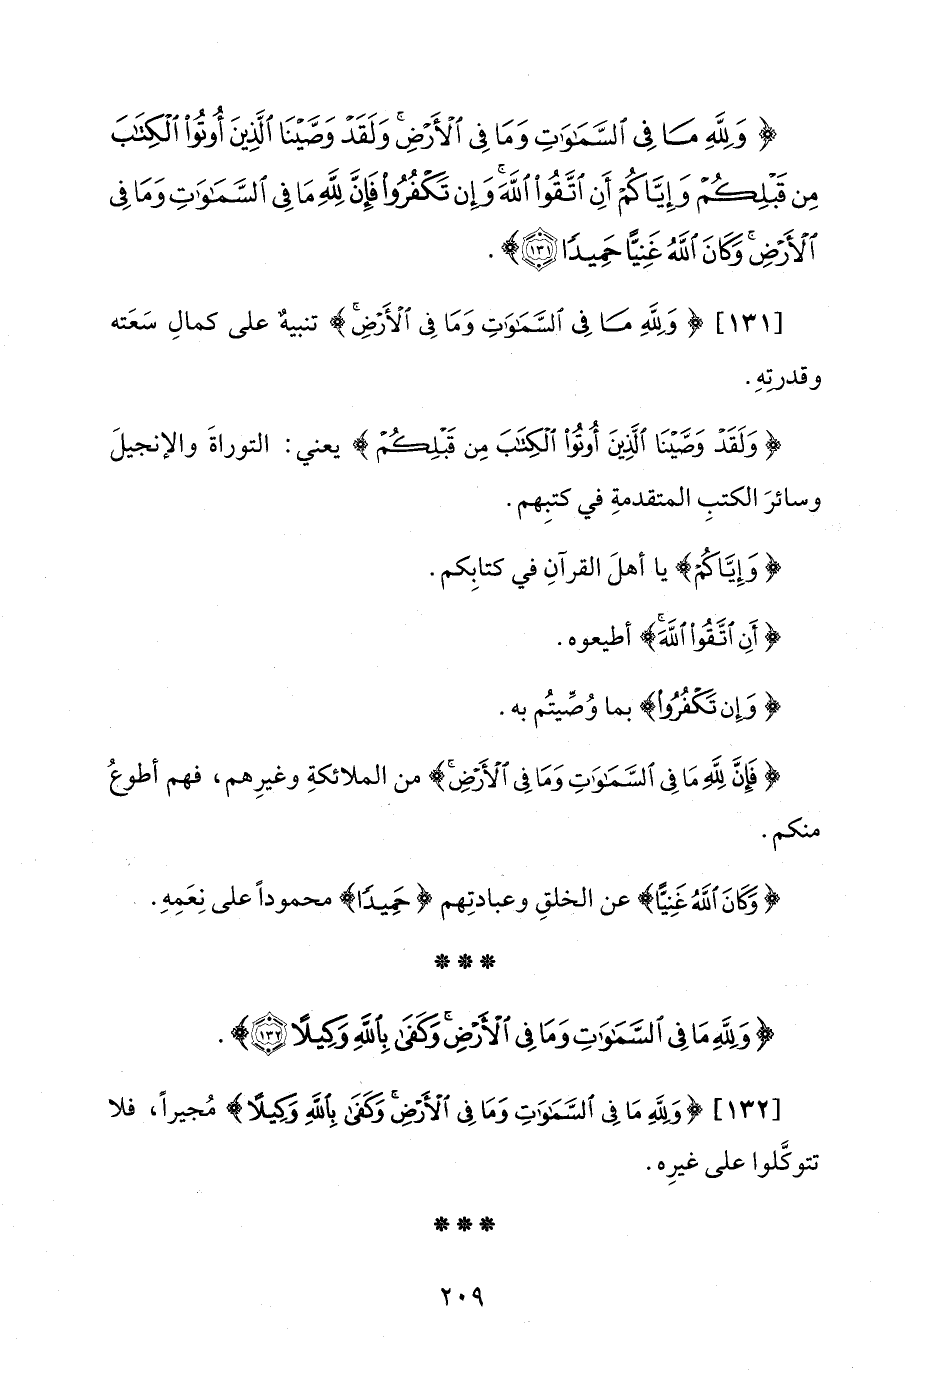 ﴿ وَلِلَّهِ مَا فِي ٱلسَّمَٰوَٰتِ وَمَا فِي ٱلْأَرْضِۗ وَلَقَدْ وَصَّيْنَا ٱلَّذِينَ أُوتُوا۟ ٱلْكِتَٰبَ
مِن قَبْلِكُمْ وَإِيَّاكُمْ أَنِ ٱتَّقُوا۟ ٱللَّهَۚ وَإِن تَكْفُرُوا۟ فَإِنَّ لِلَّهِ مَا فِي ٱلسَّمَٰوَٰتِ وَمَا فِي
ٱلْأَرْضِۚ وَكَانَ ٱللَّهُ غَنِيًّا حَمِيدًا ١٣١﴾ .
[١٣١] ﴿ وَلِلَّهِ مَا فِي ٱلسَّمَٰوَٰتِ وَمَا فِي ٱلْأَرْضِۗ﴾ تنبيهٌ على كمالِ سَعَته
وقدرتِهِ .
﴿ وَلَقَدْ وَصَّيْنَا ٱلَّذِينَ أُوتُوا۟ ٱلْكِتَٰبَ مِن قَبْلِكُمْ ﴾ يعني: التوراةَ والإنجيلَ
وسائرَ الكتبِ المتقدمةِ في كتبِهم .
﴿ وَإِيَّاكُمْ﴾ يا أهلَ القرآنِ في كتابِكم .
﴿ أَنِ ٱتَّقُوا۟ ٱللَّهَۚ﴾ أطيعوه .
﴿ وَإِن تَكْفُرُوا۟﴾ بما وُصِّيتُم به .
﴿ فَإِنَّ لِلَّهِ مَا فِي ٱلسَّمَٰوَٰتِ وَمَا فِي ٱلْأَرْضِۚ﴾ من الملائكةِ وغيرِهم، فهم أطوعُ
منكم .
﴿ وَكَانَ ٱللَّهُ غَنِيًّا﴾ عن الخلقِ وعبادتِهم ﴿ حَمِيدًا﴾ محموداً على نِعَمِهِ .
***
﴿ وَلِلَّهِ مَا فِي ٱلسَّمَٰوَٰتِ وَمَا فِي ٱلْأَرْضِۚ وَكَفَىٰ بِٱللَّهِ وَكِيلًا ١٣٢﴾ .
[١٣٢] ﴿ وَلِلَّهِ مَا فِي ٱلسَّمَٰوَٰتِ وَمَا فِي ٱلْأَرْضِۚ وَكَفَىٰ بِٱللَّهِ وَكِيلًا﴾ مُجيراً، فلا
تتوكَّلوا على غيرِه .
***
٢٠٩